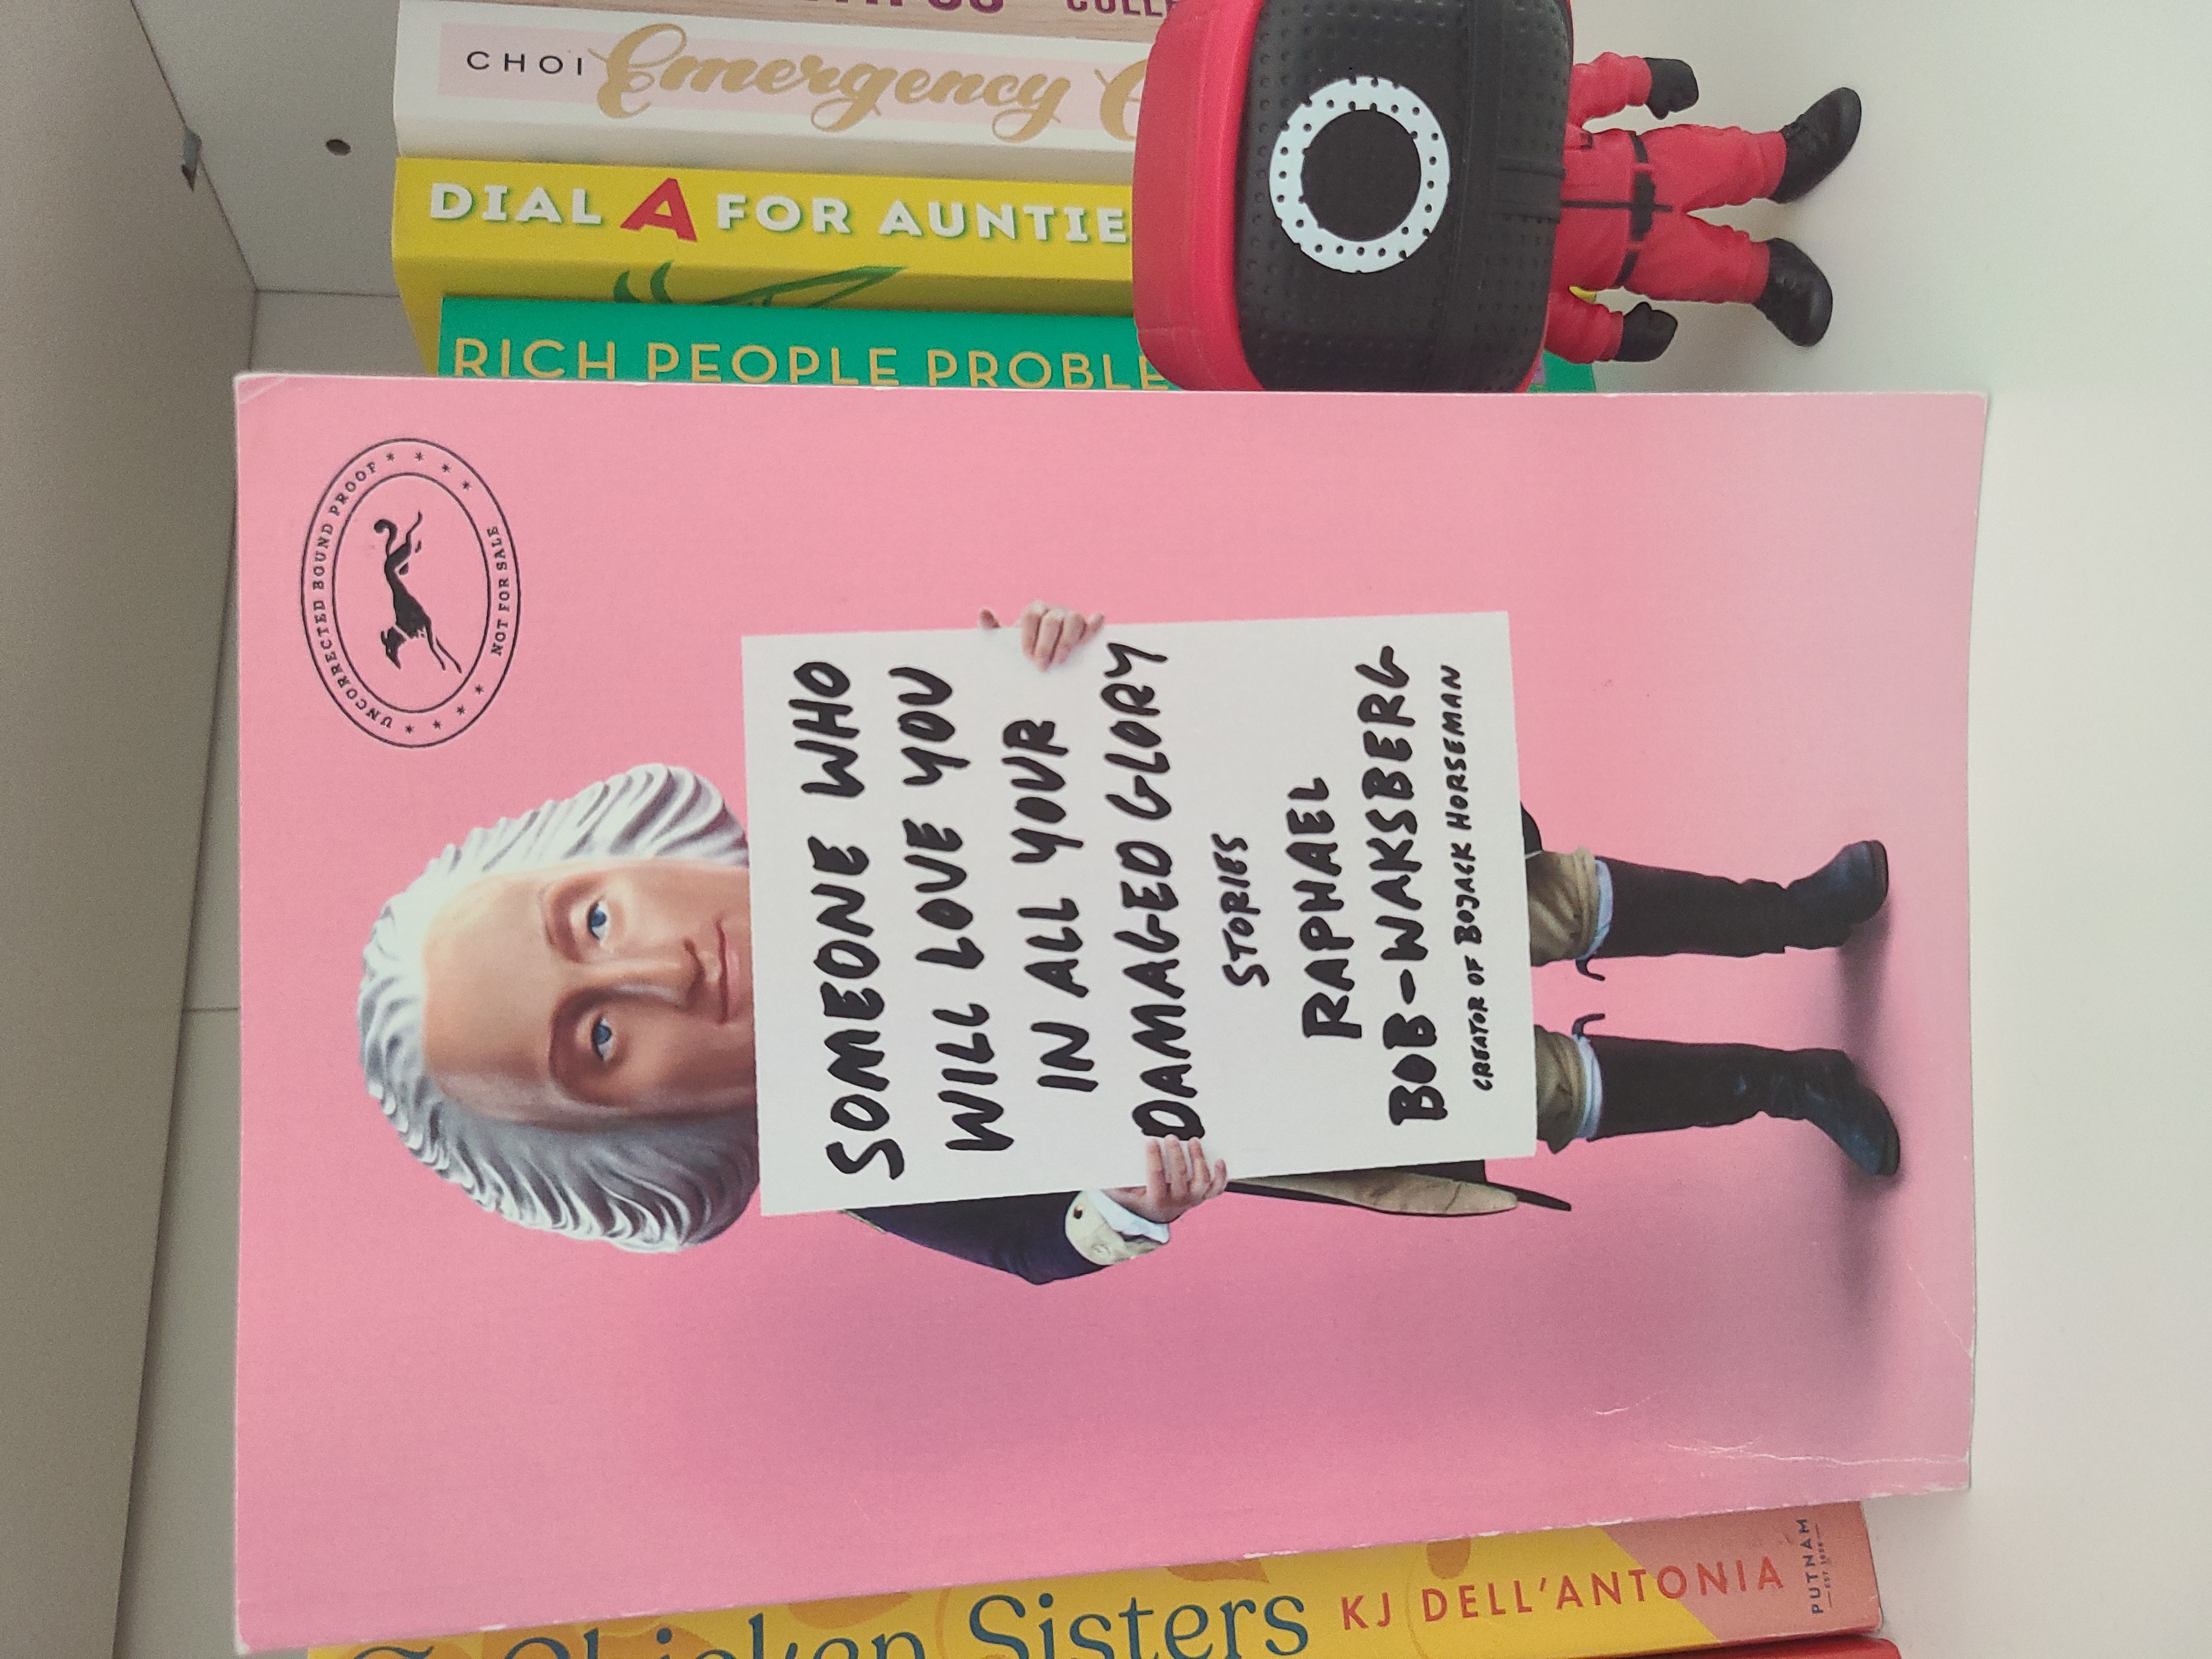 CHOI Emergency
DIAL A FOR AUNTIE
RICH PEOPLE PROBLE
UNCORRECTED BOUND PROOF
NOT FOR SALE
SOMEONE WHO
WILL LOVE YOU
IN ALL YOUR
DAMAGED GLORY
STORIES
RAPHAEL
BOB-WAKSBERG
CREATOR OF BOJACK HORSEMAN
Chicken Sisters KJ DELL'ANTONIA PUTNAM